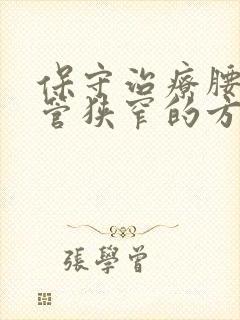 保守治療腰
管狹窄的方
張學曾